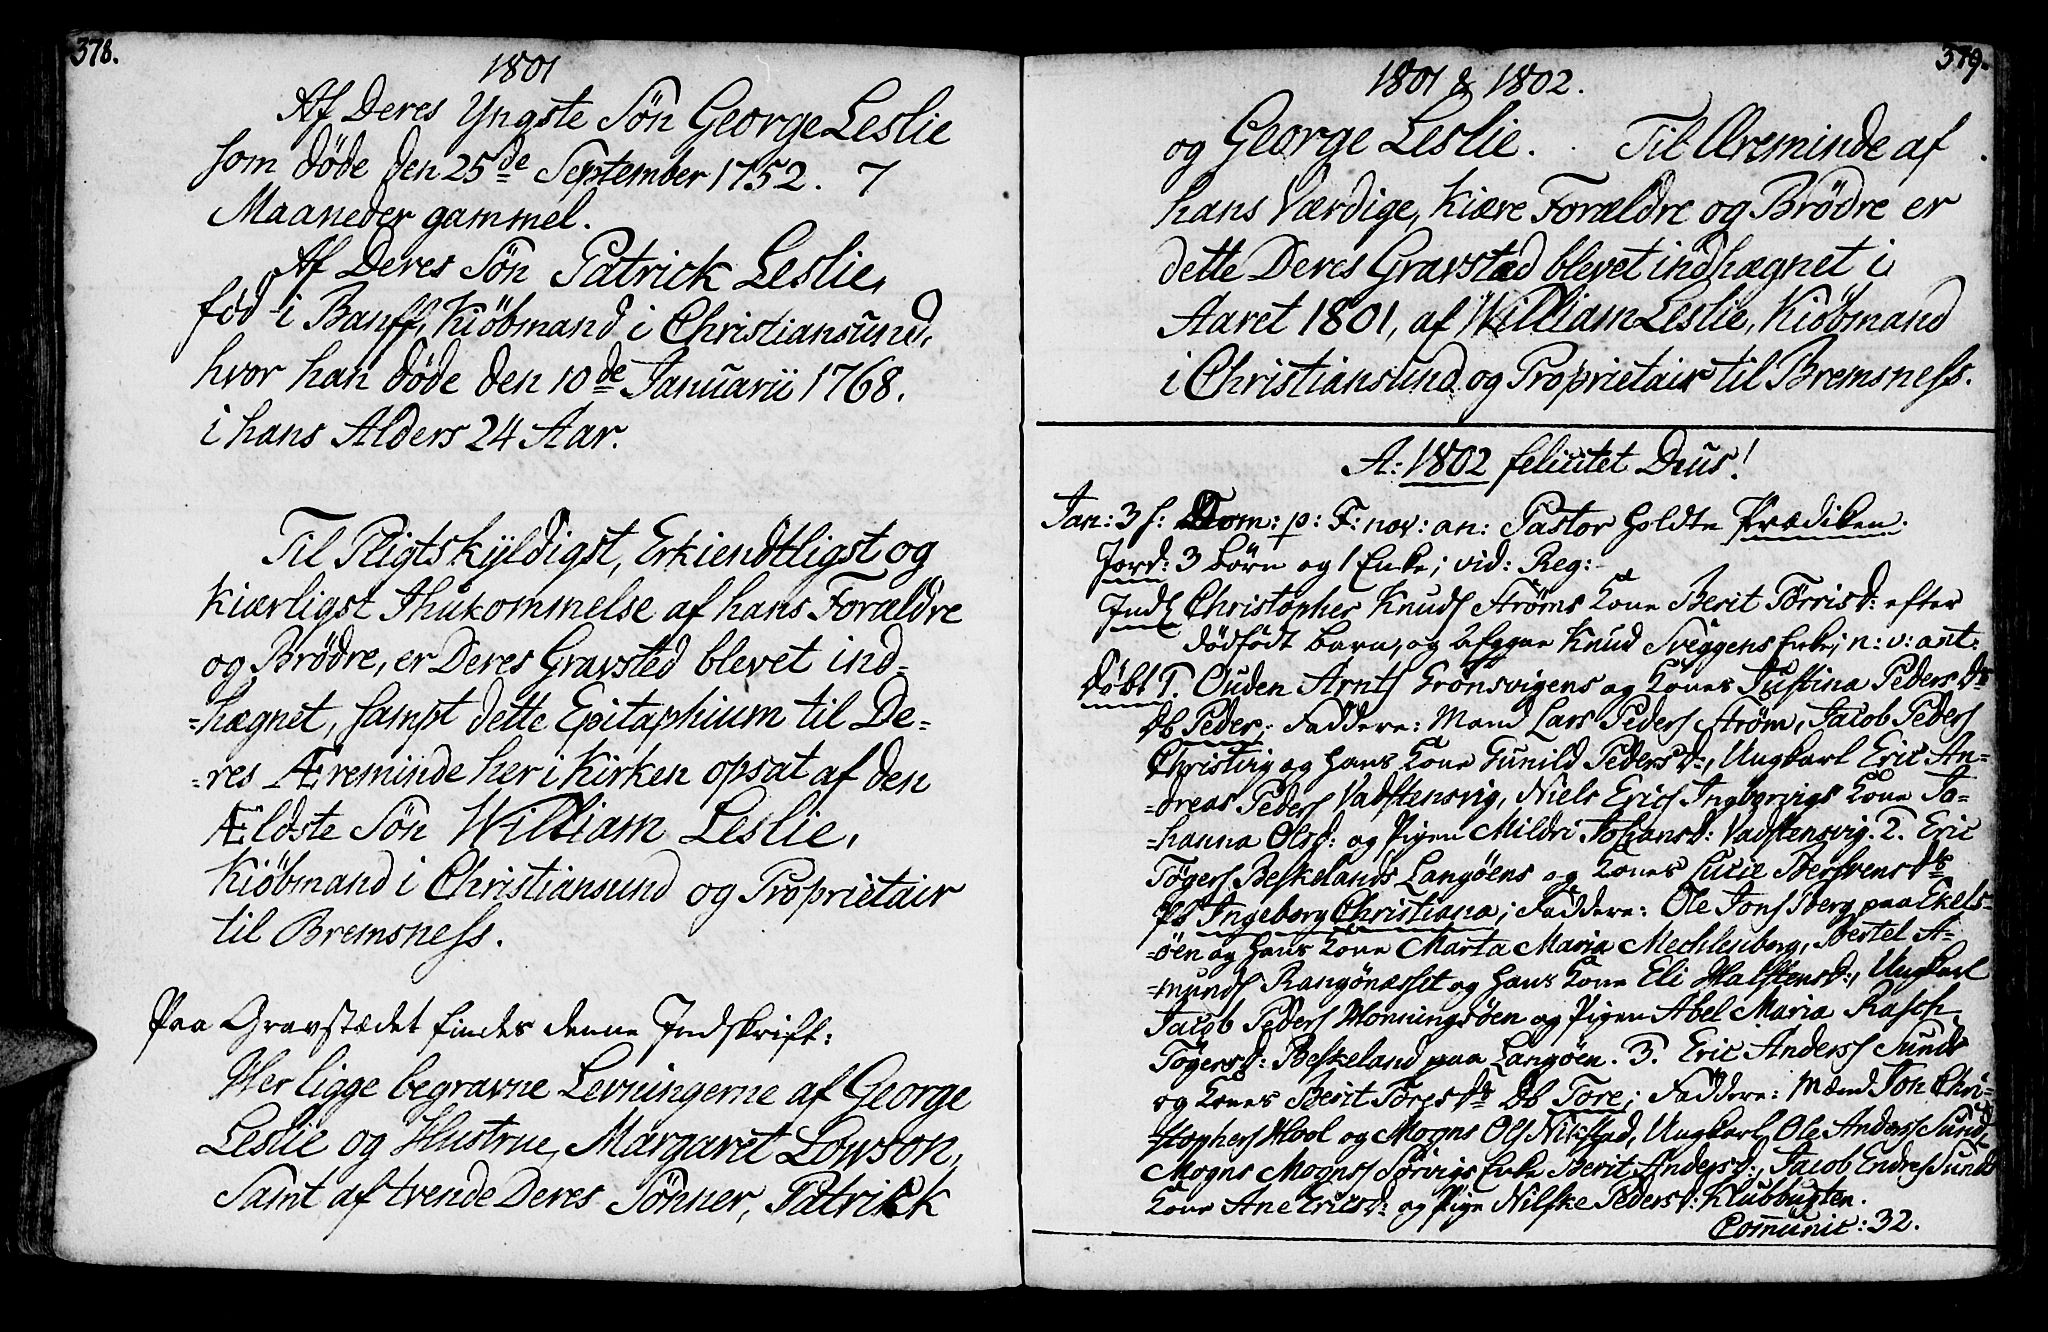 378.
1801
Af Deres Yngste Sön George Leslie
som döde den 25de September 1752. 7
Maaneder gammel.
Af Deres Sön Patrick Leslie,
föd i Banff, Kiöbmand i Christiansund,
hvor han döde den 10de Januarii 1768.
i hans Alders 24 Aar.
Til Pligtskyldigst, Erkiendtligst og
Kiærligst Ihukommelse af hans Forældre
og Brödre, er Deres Gravsted blevet ind-
-hægnet, sampt dette Epitaphium til De-
-res Æreminde her i Kirken opsat af den
Ældste Sön William Leslie,
Kiöbmand i Christiansund og Proprietair
til Bremsness.
Paa Gravstædet findes denne Indskrift:
Her ligge begravne Levningerne af George
Leslie og Hustrue, Margaret Lowson,
Samt af trende Deres Sönner, Patrick
379.
1801 & 1802.
og George Leslie. Til Æreminde af
hans Værdige, Kiære Forældre og Brödre er
dette Deres Gravstæd blevet indhægnet i
Aaret 1801, af William Leslie, Kiöbmand
i Christiansund og Proprietair til Bremsness.
A: 1802 felicitet Deus!
Jan: 3 f: Dom: p: F: nov: an: Pastor holdte Prædiken.
Jord: 3 Börn og 1 Enke; vid: Reg:
Indl Christopher Knuds Ströms Kone Berit Törrisd: efter
dödfödt barn, og Knud Sveggens Enke; n: v: ant:
Döbt 1. Ouden Arnts Grönsvigens og Kones Justina Pedersdr
Db Peder; Faddere: Mænd Lars Peders Ström, Jacob Peders
Christvig og hans Kone Gunild Pedersd:, Ungkarl Eric An-
-dreas Peders Vadstensvig, Niels Erics Ingborvigs Kone Jo-
-hanna Olsd: og Pigen Mildri Johansd: Vadstensvig. 2. Eric
Tögers Beskelands Langöens og Kones Lucie Bersvensdr
Pb Ingeborg Christiana; Faddere: Ole Jons Berg paa Ekels-
-öen og hans Kone Marta Maria Mechlenborg, Bertel A-
-munds Rangönæsset og hans Kone Eli Halstensd:, Ungkarl
Jacob Peders Honningsöen og Pigen Abel Maria Rasch
Tögersd: Beskeland paa Langöen. 3. Eric Anders Sunds
og Kones Berit Toresdr Db Tore; Faddere: Mænd Jon Chri-
stophers Hool og Mogns Ols Nikstad, Ungkarl Ole Anders Sund,
Mogns Mogns Sörvigs Enke Berit Andersd:, Jacob Endres Sunds
Kone Ane Ericsd: og Pige Nilske Pedersd: Klubbugten.
Comunic: 32.